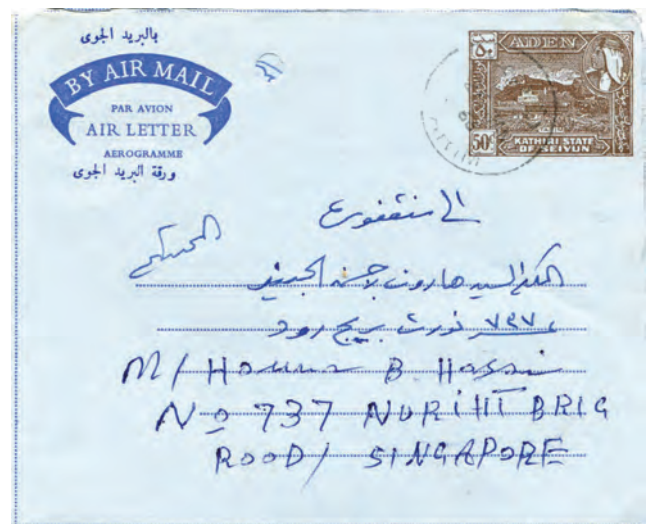 بالبريد الجوى
BY AIR MAIL
PAR AVION
AIR LETTER
AEROGRAMME
ورقة البريد الجوى
ADEN
٥٠
50
KATHIRI STATE
OF SEIYUN
الى سنقفوره
المكرم السيد هارون بن حسن الجنيد
٧٣٧ نورث بريج رود
M/ Haruna B Hassan
No 737 NURIHT BRIG
ROOD/ SINGAPORE